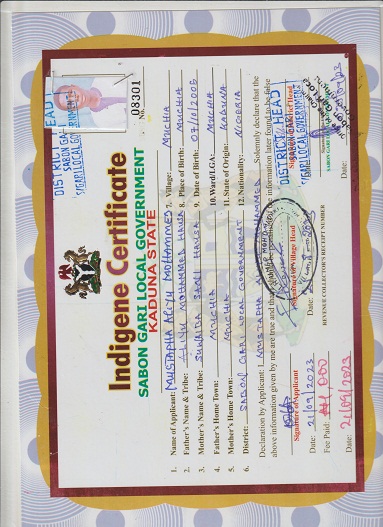 DISTRICT HEAD
SABON GA
S/GARI LOCAL GOVERNMENT
No. 08301
Indigene Certificate
SABON GARI LOCAL GOVERNMENT
KADUNA STATE
1. Name of Applicant: MUSTAPHA ALIYU MOHAMMED 7. Village: MUCHIA
2. Father's Name & Tribe: ALIYU MOHAMMED HAUSA 8. Place of Birth: MUCHIA
3. Mother's Name & Tribe: SUWAIDA SANI HAUSA 9. Date of Birth: 07/10/2005
4. Father's Home Town: MUCHIA 10. Ward/LGA: MUCHIA
5. Mother's Home Town: MUCHIA 11. State of Origin: KADUNA
6. District: SABON GARI LOCAL GOVERNMENT 12. Nationality: NIGERIA
Declaration by Applicant: I MUSTAPHA ALIYU MOHAMMED Solemnly declare that the
above information given by me are true and that information later found to be false
Signature of Applicant
Signature of Village Head
DISTRICT HEAD
S/GARI LOCAL GOVERNMENT
Date: 21/09/2023
Date:
Date:
Fee Paid: ₦1,000
REVENUE COLLECTOR'S RECEIPT NUMBER
21/09/2023